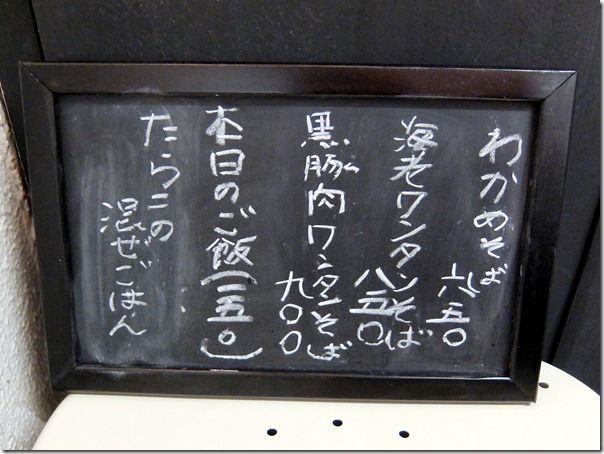 わかめそば
六五〇
海老ワンタンそば
八五〇
黒豚肉ワンタンそば
九〇〇
本日のご飯(一五〇)
たらこの
混ぜごはん